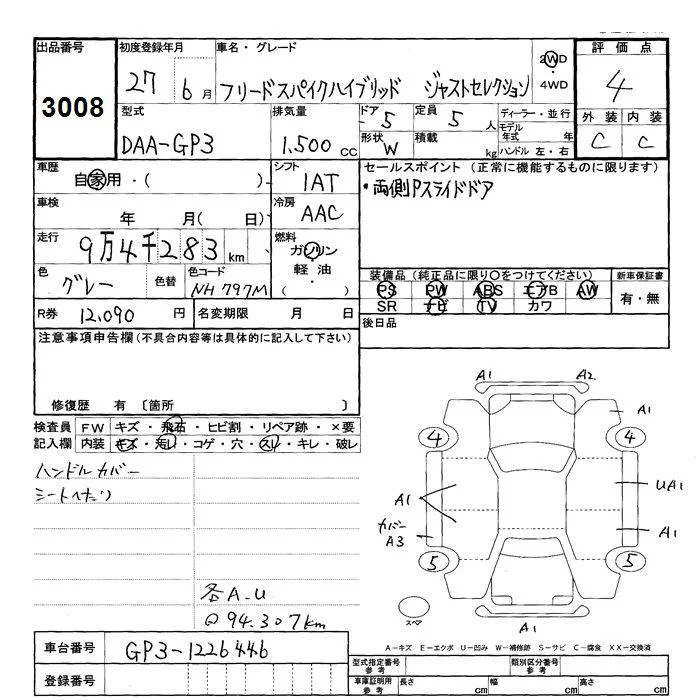 出品番号
3008
初度登録年月
27 6月
車名・グレード
フリードスパイクハイブリッド ジャストセレクション
2WD
・4WD
評価点
4
外装 内装
C C
型式
DAA-GP3
排気量
1,500 cc
ドア
5
定員
5 人
形状
W
積載
kg
ディーラー・並行
モデル年式 年
ハンドル 左・右
車歴
自家用・( )
シフト
IAT
車検
年 月( 日)
冷房
AAC
走行
9万4千283 km
燃料
ガソリン
軽油
( )
色
グレー
色替
色コード
NH797M
R券 12,090 円
名変期限 月 日
セールスポイント (正常に機能するものに限ります)
・両側Pスライドドア
装備品 (純正品に限り○をつけてください)
PS PW ABS エアB AW
SR ナビ TV カワ
新車保証書
有・無
後日品
注意事項申告欄 (不具合内容等は具体的に記入して下さい)
修復歴 有 〔箇所 〕
検査員 記入欄
FW キズ・飛石・ヒビ割・リペア跡・×要
内装 キズ・汚レ・コゲ・穴・スレ・キレ・破レ
ハンドルカバー
シートヘタリ
各A.U
94.307km
A1 A2
A1
4 4
A1
UA1
カバー
A3
A1
5 5
スペア
A1
A-キズ E-エクボ U-凹み W-補修跡 S-サビ C-腐食 XX-交換済
車台番号 GP3-1226446
登録番号
型式指定番号 参考
類別区分番号 参考
車庫証明用 参考
長さ cm 幅 cm 高さ cm